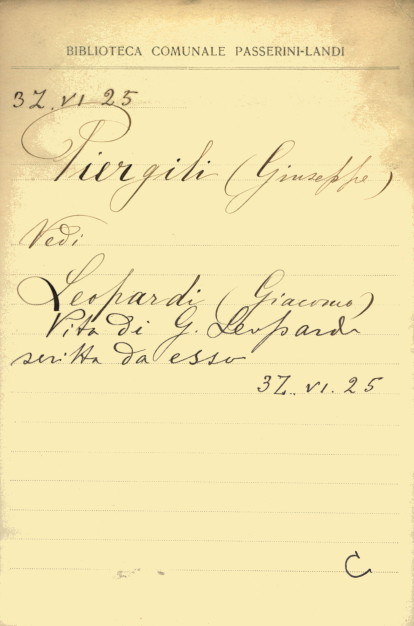 BIBLIOTECA COMUNALE PASSERINI-LANDI
3Z.VI.25
Piergili (Giuseppe)
Vedi
Leopardi (Giacomo)
Vita di G. Leopardi
scritta da esso
3Z.VI.25
C